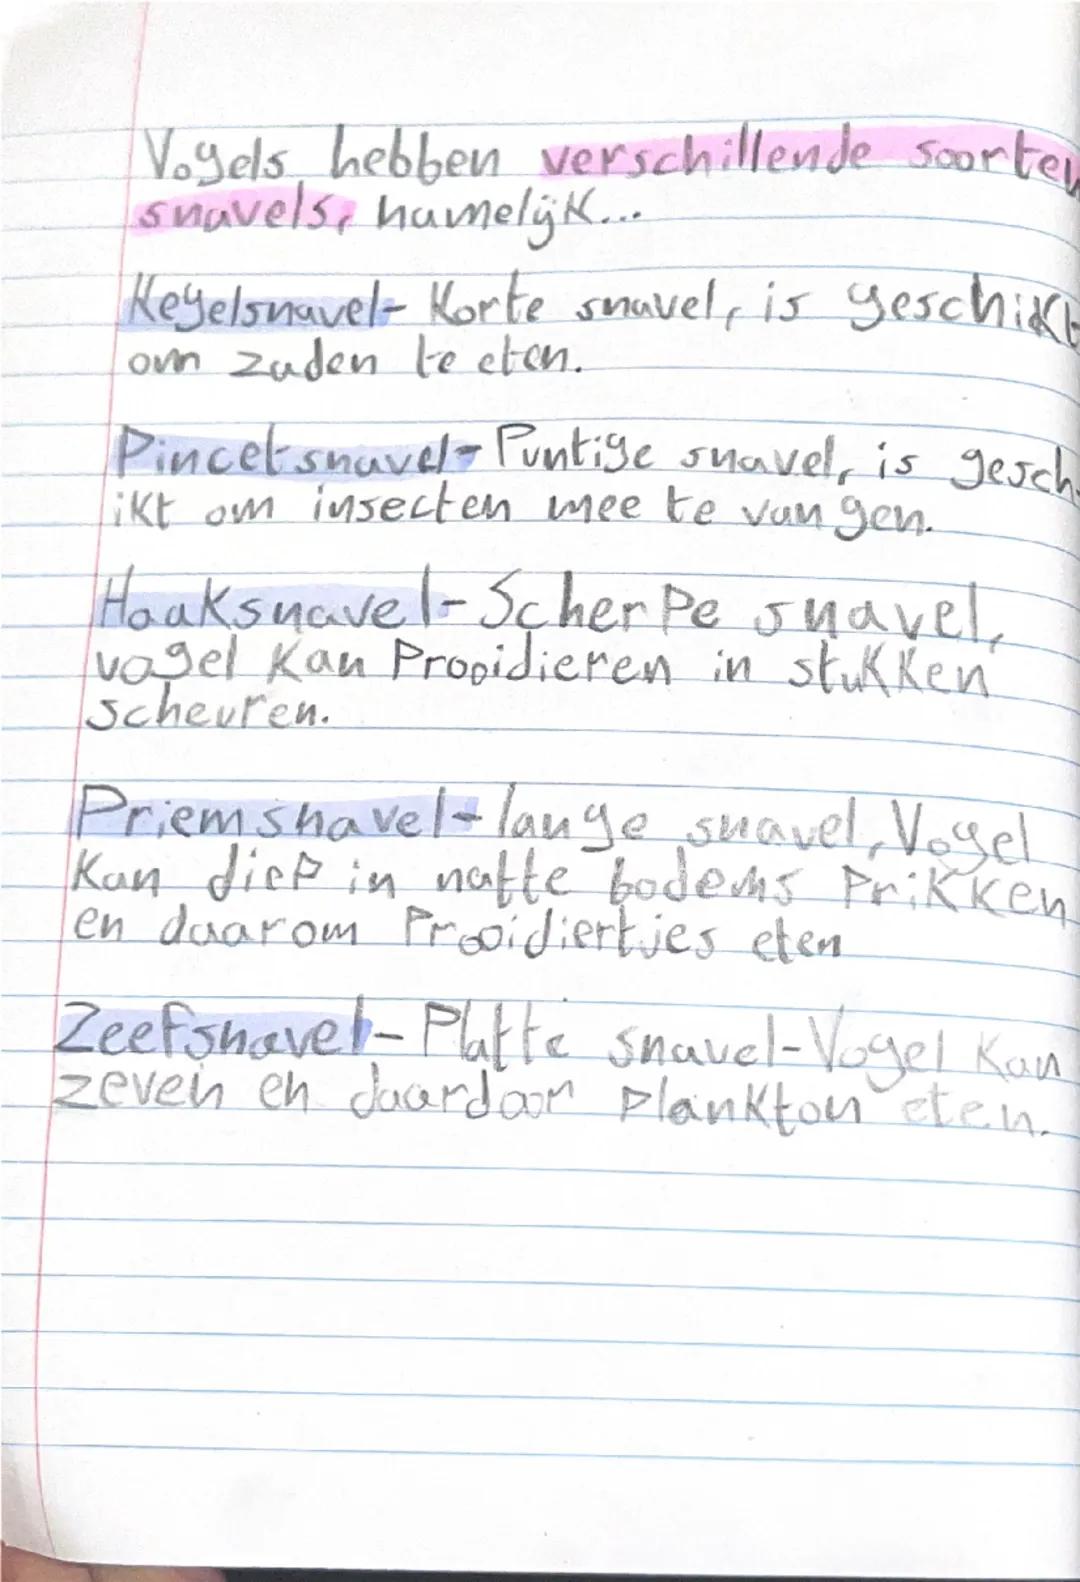 Vogels hebben verschillende soorten
snavels, namelijk...
Kegelsnavel- Korte snavel, is geschikt
om zaden te eten.
Pincetsnavel- Puntige snavel, is gesch-
ikt om insecten mee te vangen.
Haaksnavel- Scherpe snavel,
vogel kan Prooidieren in stukken
scheuren.
Priemsnavel- lange snavel, Vogel
kan diep in natte bodems Prikken
en daarom Prooidiertjes eten
Zeefsnavel- Platte snavel- Vogel kan
zeven en daardoor plankton eten.